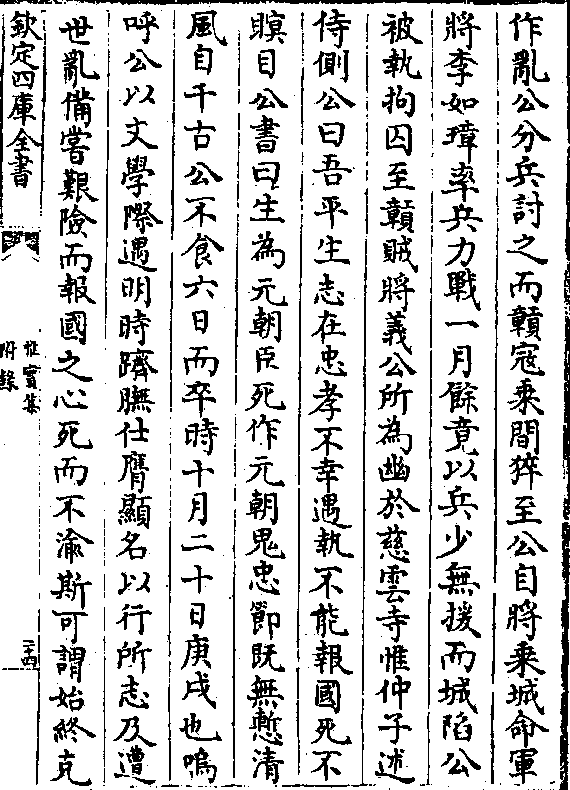 作亂公分兵討之而贑寇乘間猝至公自將乘城命軍
將李如璋率兵力戰一月餘竟以兵少無援而城陷公
被執拘囚至贑賊將義公所為幽於慈雲寺惟仲子述
侍側公曰吾平生志在忠孝不幸遇執不能報國死不
瞑目公書曰生為元朝臣死作元朝鬼忠節既無慙清
風自千古公不食六日而卒時十月二十日庚戌也嗚
呼公以文學際遇明時躋膴仕膺顯名以行所志及遭
世亂備嘗艱險而報國之心死而不渝斯可謂始終克
欽定四庫全書
惟實集
附錄
三十四